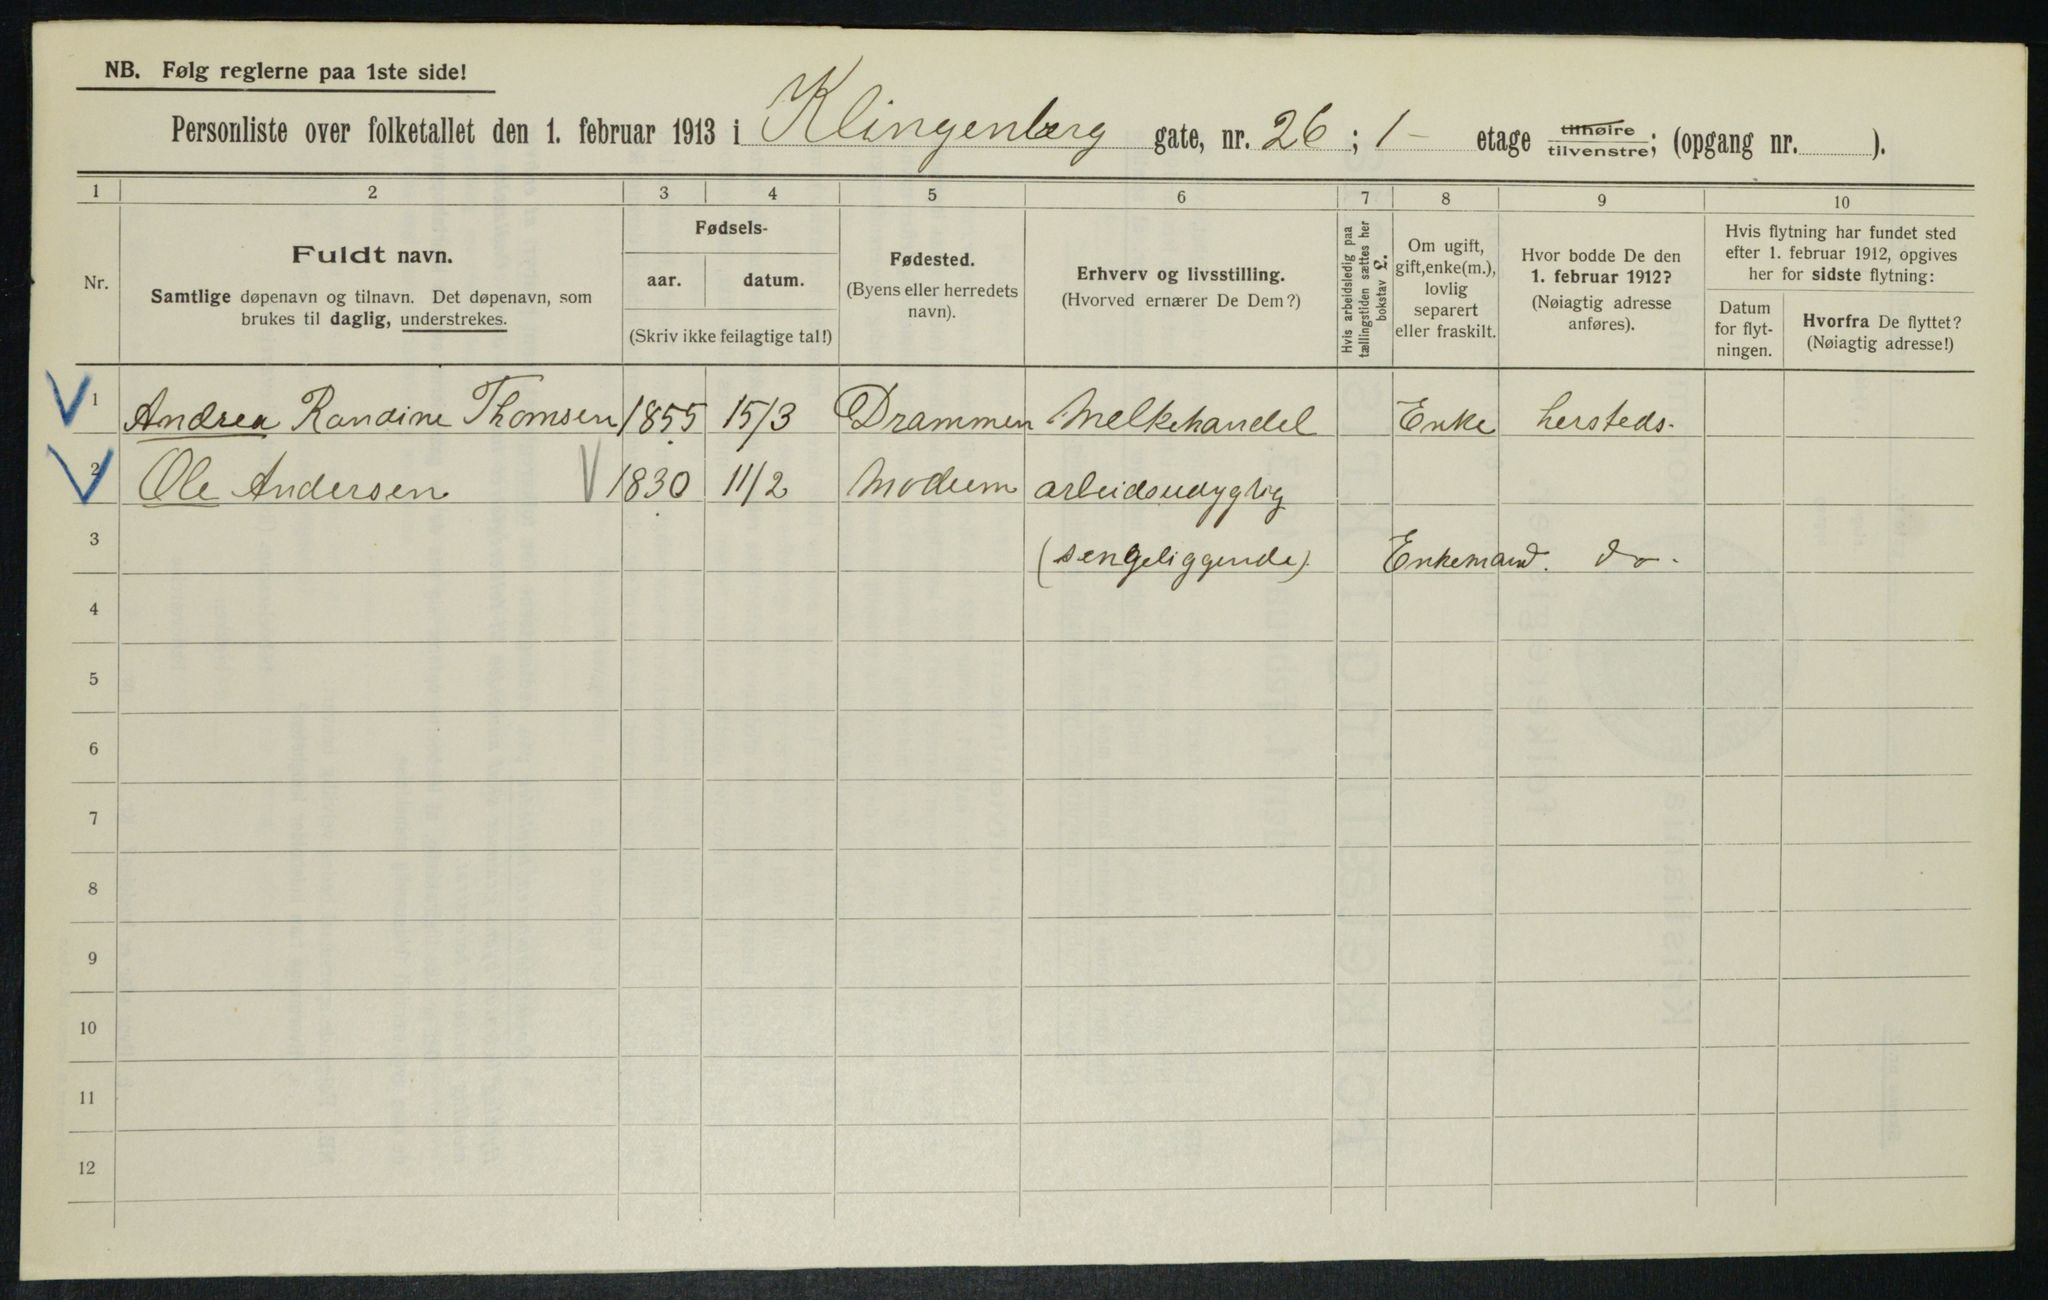 NB. Følg reglerne paa 1ste side!
Personliste over folketallet den 1. februar 1913 i Klingenberg gate, nr. 26; 1- etage tilhøire tilvenstre; (opgang nr. ).
1 2 3 4 5 6 7 8 9 10
Nr.
Fuldt navn.
Samtlige døpenavn og tilnavn. Det døpenavn, som
brukes til daglig, understrekes.
Fødsels-
aar. datum.
(Skriv ikke feilagtige tal!)
Fødested.
(Byens eller herredets
navn).
Erhverv og livsstilling.
(Hvorved ernærer De Dem?)
Hvis arbeidsledig paa
tællingstiden sættes her
bokstav £.
Om ugift,
gift, enke(m.),
lovlig
separert
eller fraskilt.
Hvor bodde De den
1. februar 1912?
(Nøiagtig adresse
anføres).
Hvis flytning har fundet sted
efter 1. februar 1912, opgives
her for sidste flytning:
Datum
for flyt-
ningen.
Hvorfra De flyttet?
(Nøiagtig adresse!)
1 Andrea Randine Thomsen 1855 15/3 Drammen Melkehandel Enke hersteds.
2 Ole Andersen 1830 11/2 Modum arbeidsudyglig
3 (sengeliggende). Enkemand. do.
4
5
6
7
8
9
10
11
12